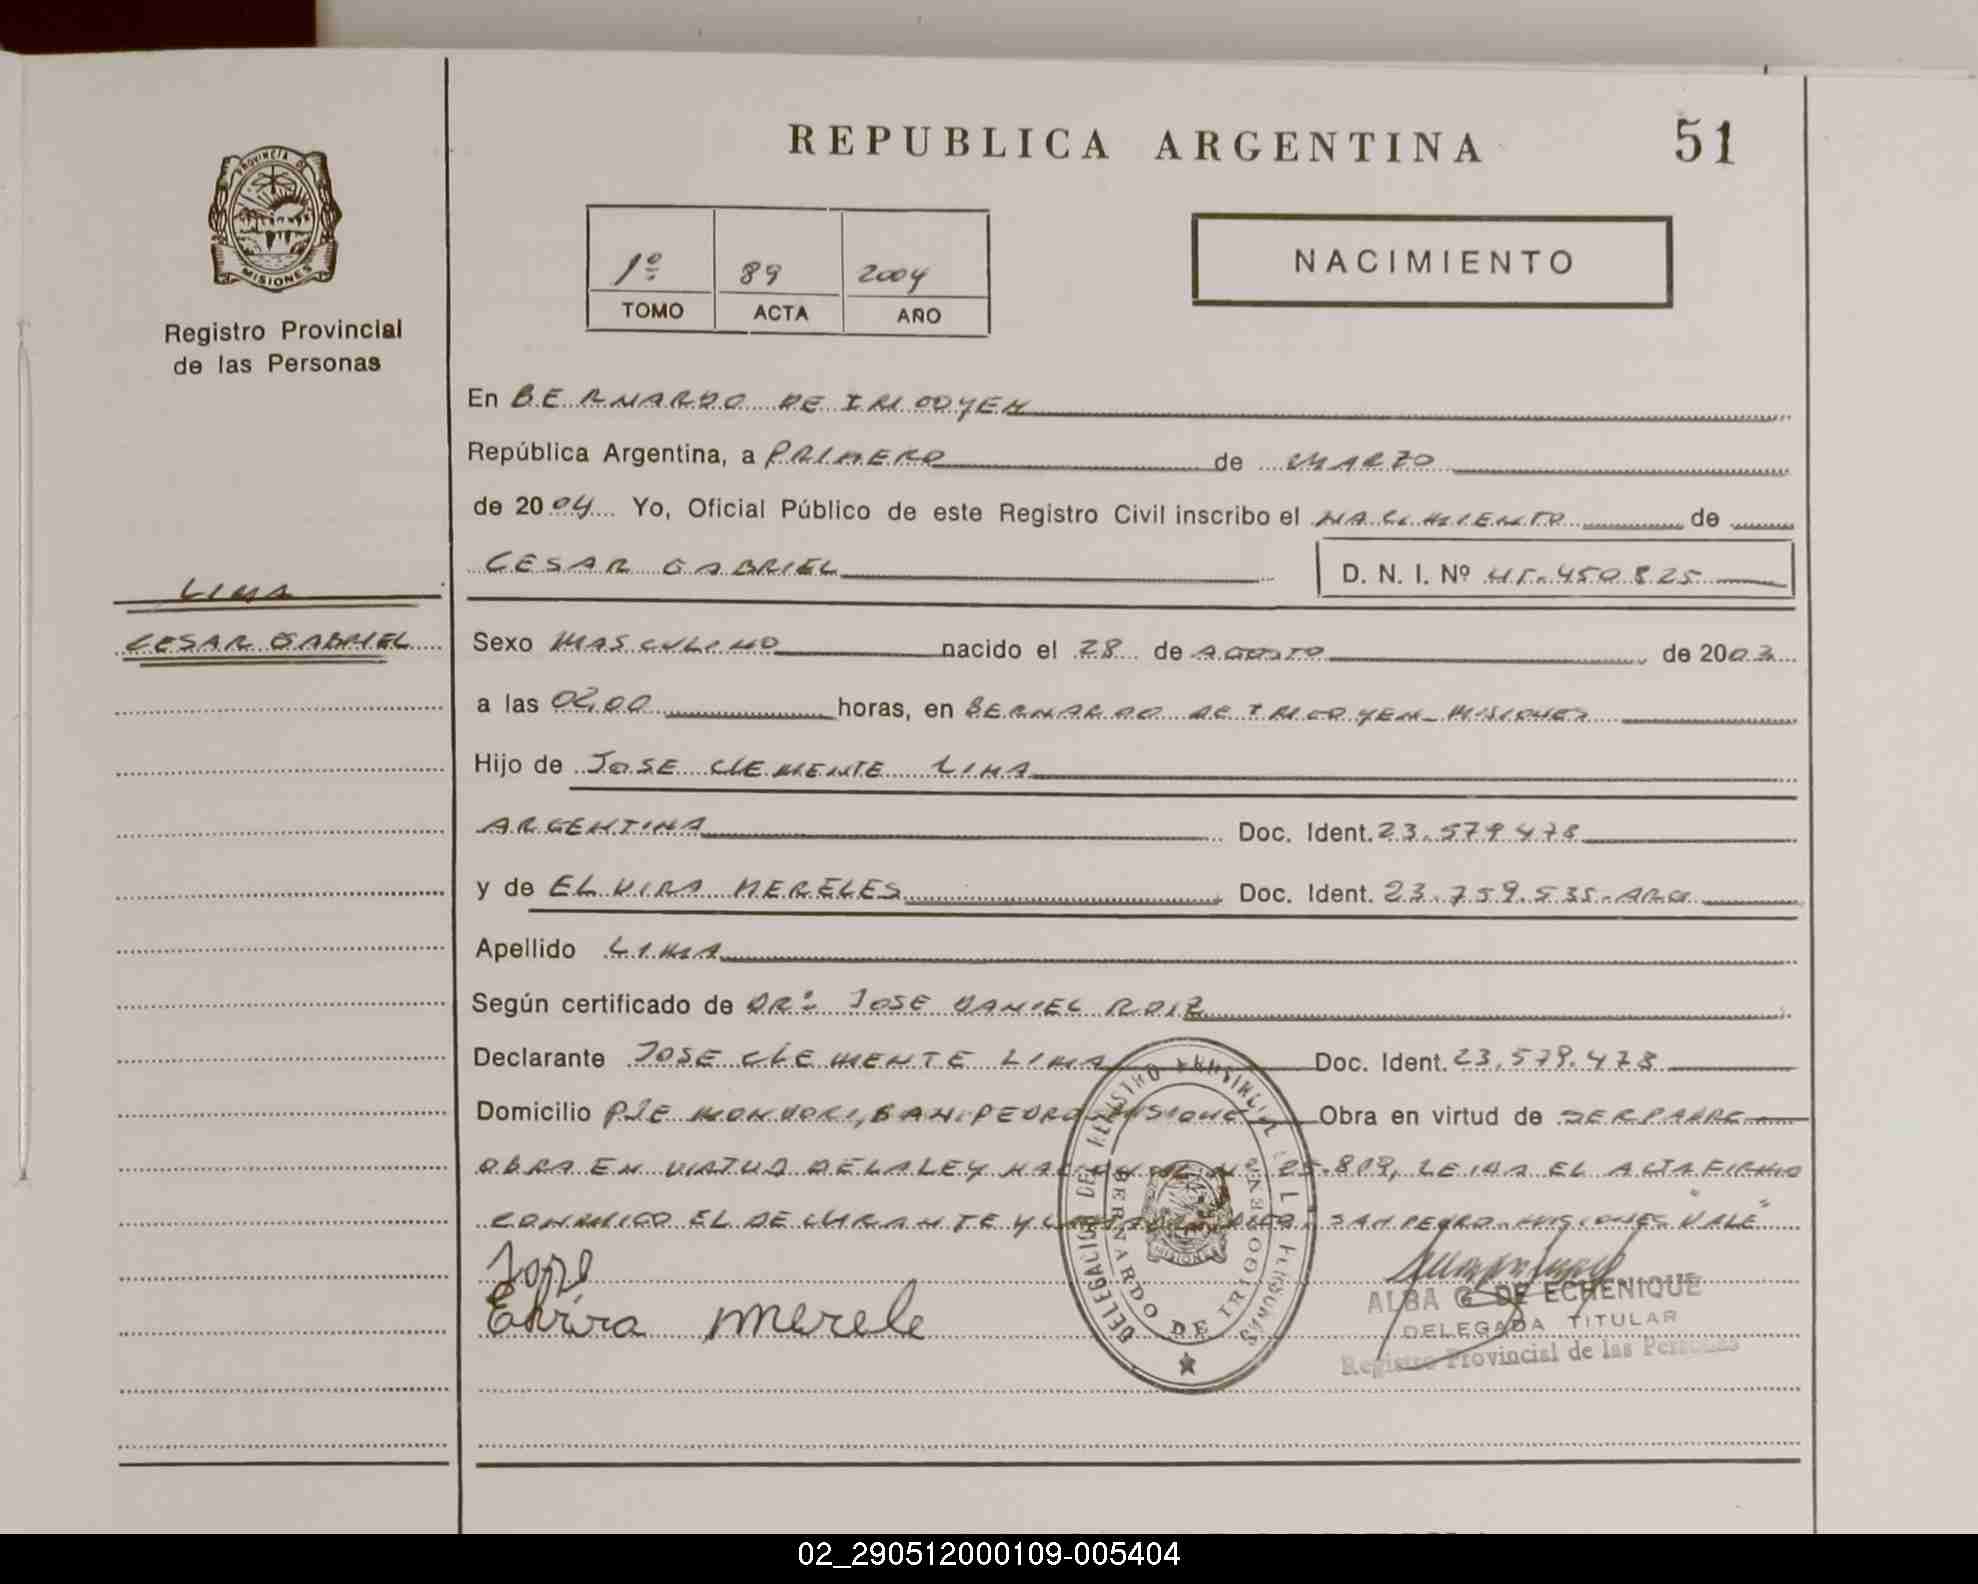 REPUBLICA ARGENTINA
51
PROVINCIA DE
MISIONES
Registro Provincial
de las Personas
1º 89 2004
TOMO ACTA AÑO
NACIMIENTO
En BERNARDO DE IRIGOYEN
República Argentina, a PRIMERO de MARZO
de 2004 Yo, Oficial Público de este Registro Civil inscribo el NACIMIENTO de
CESAR GABRIEL D. N. I. Nº 45.450.825
LIMA
CESAR GABRIEL
Sexo MASCULINO nacido el 28 de AGOSTO de 2003
a las 02,00 horas, en BERNARDO DE IRIGOYEN-MISIONES
Hijo de JOSE CLEMENTE LIMA
ARGENTINA Doc. Ident. 23.579.478
y de ELVIRA MERELES Doc. Ident. 23.759.535-ARG
Apellido LIMA
Según certificado de DR: JOSE DANIEL ROIZ
Declarante JOSE CLEMENTE LIMA Doc. Ident. 23.579.478
Domicilio PJE MONDORI, SAN PEDRO MISIONE Obra en virtud de SER PADRE
OBRA EN VIRTUD DE LA LEY NACIONAL Nº 25.819, LEIDA EL ACTA FIRMO
CONMIGO EL DECLARANTE Y SAN PEDRO-MISIONES "VALE"
Jose
Elvira merele
DELEGACIO DEL REGISTRO PROVINCIAL DE L PERSONAS
BERNARDO DE IRIGOYEN
MISIONES
ALBA G. DE ECHENIQUE
DELEGADA TITULAR
Registro Provincial de las Personas
02_290512000109-005404